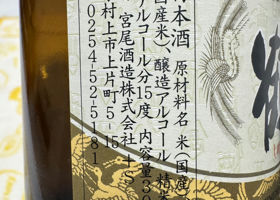 本酒
原材料名 米(国産
国産米)、醸造アルコール
アルコール分15度 内容量30
宮尾酒造株式会社 +S
村上市上片町5-15
0254-52-5181
鶴